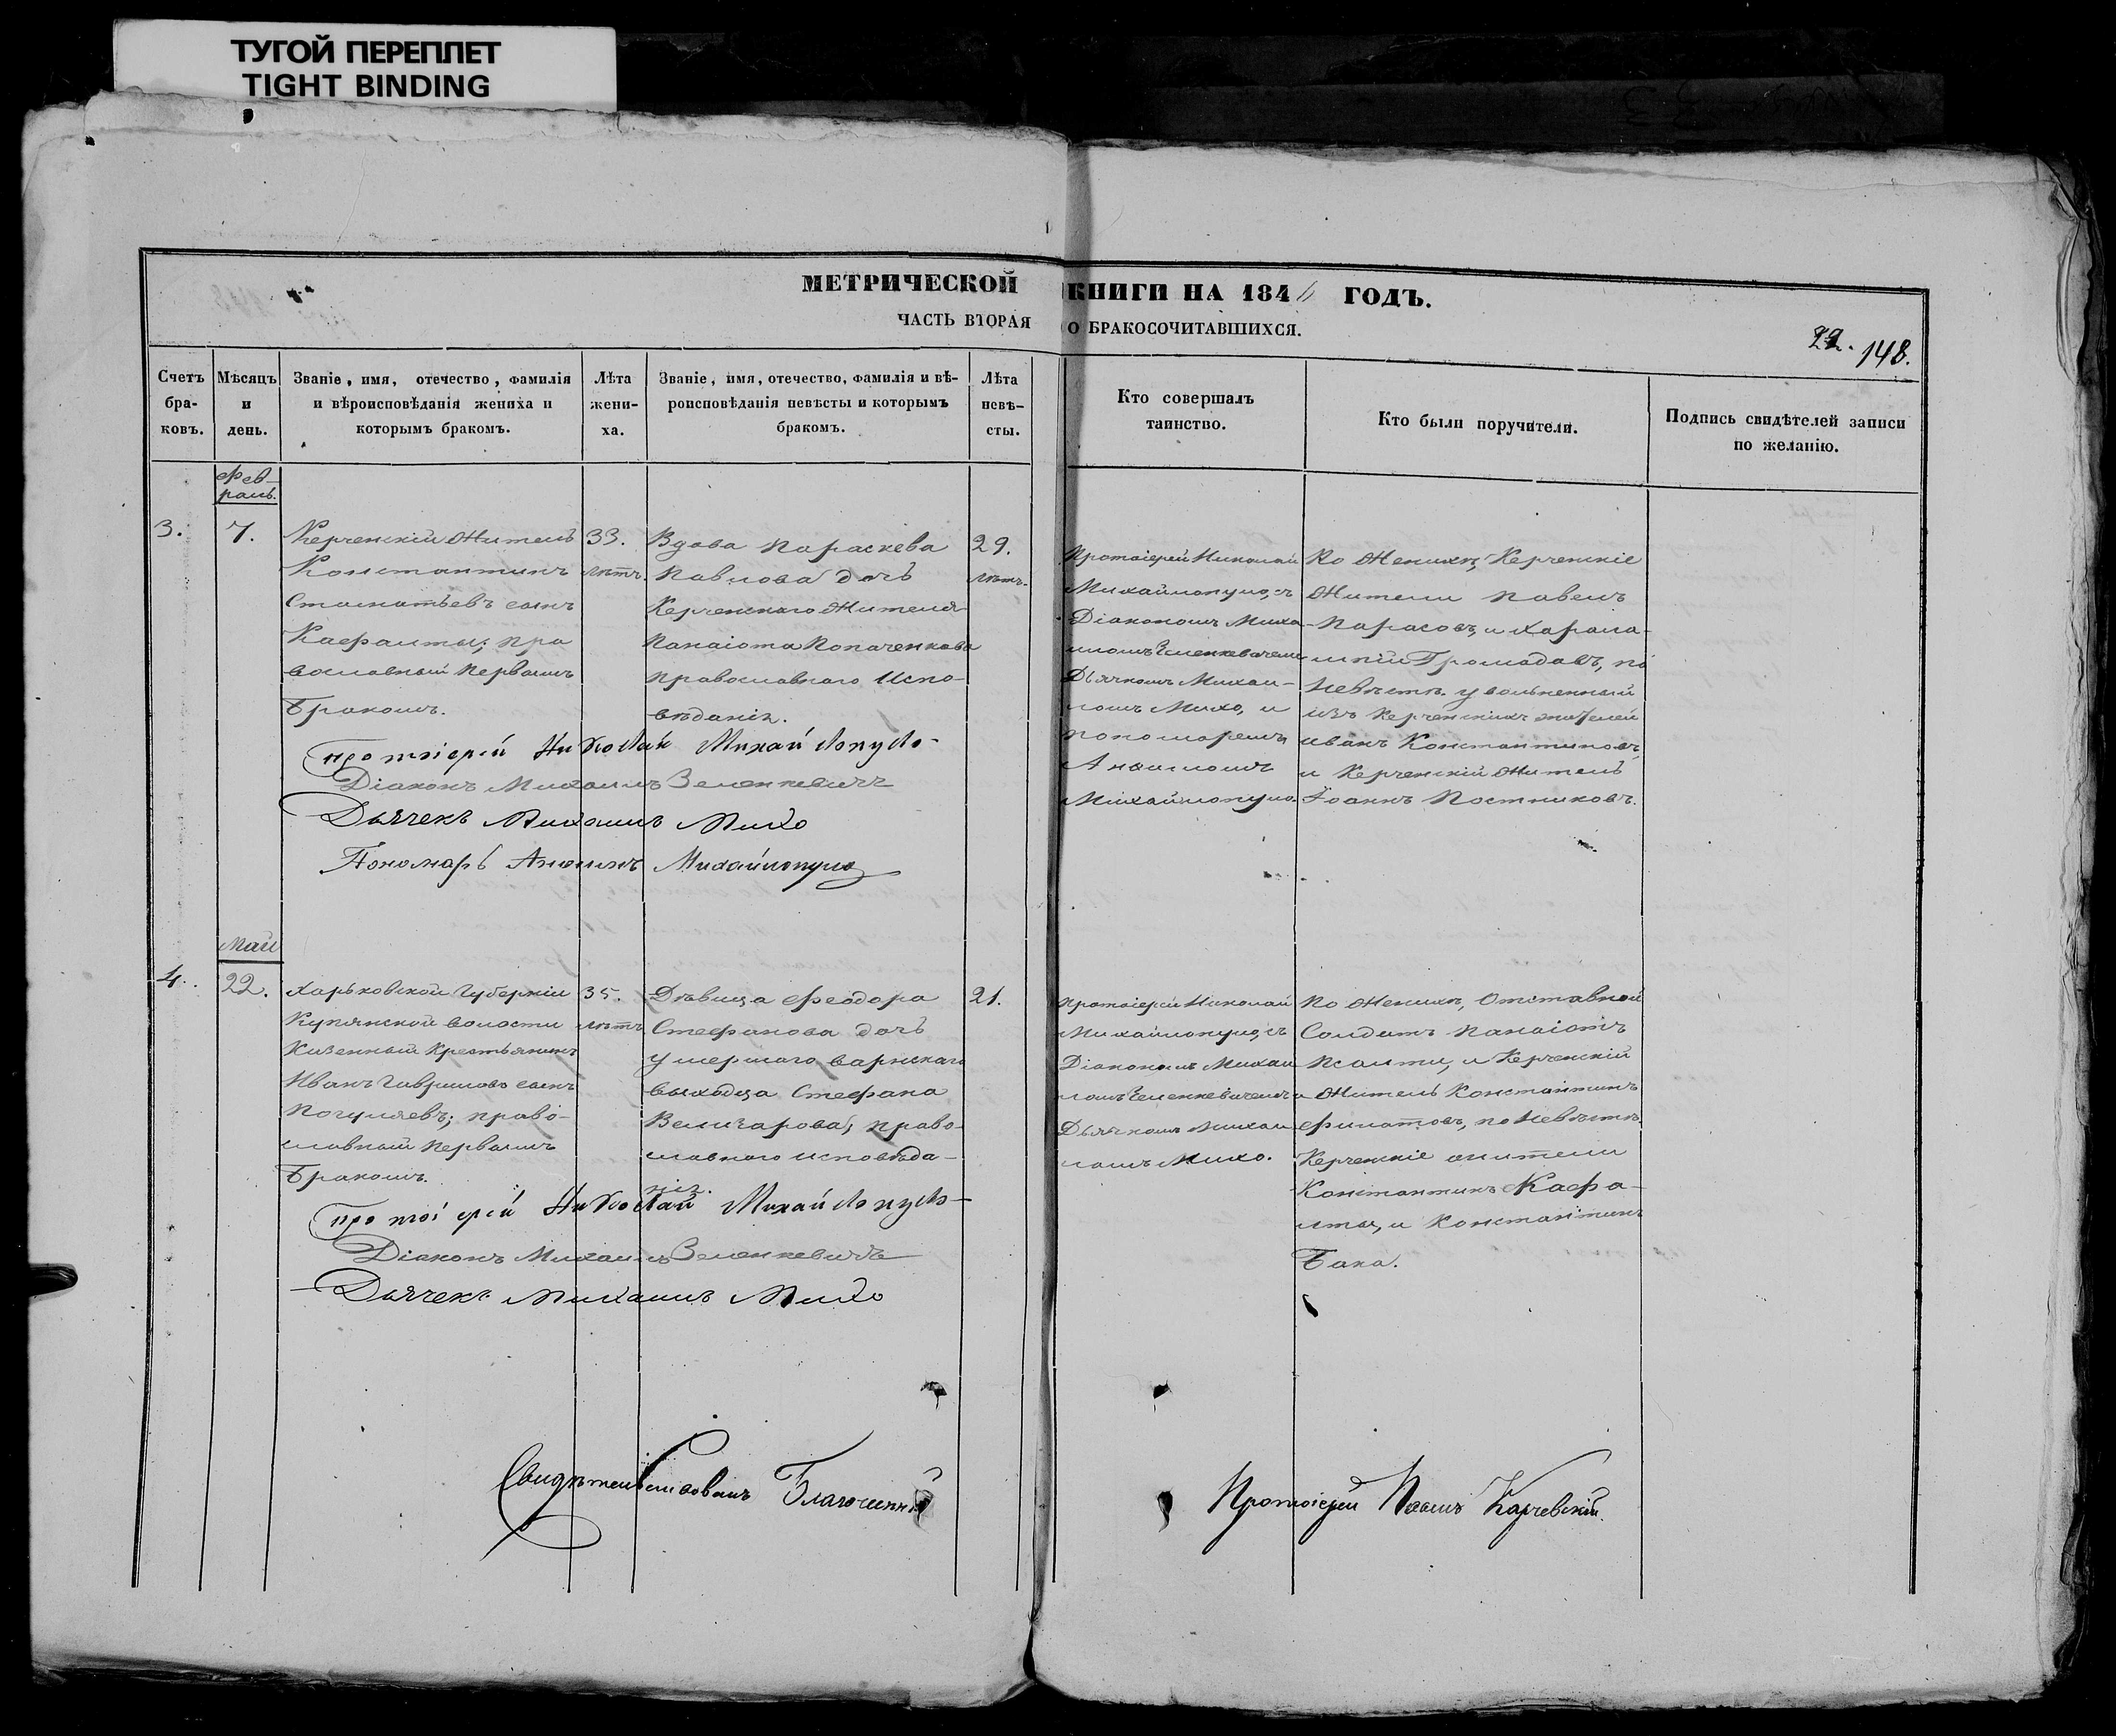 ТУГОЙ ПЕРЕПЛЕТ
TIGHT BINDING
МЕТРИЧЕСКОЙ КНИГИ НА 184 ГОДЪ.
ЧАСТЬ ВТОРАЯ О БРАКОСОЧИТАВШИХСЯ.
148.
Счетъ
бра-
ковъ.
Мѣсяцъ
и
день.
Званіе, имя, отечество, фамилія
и вѣроисповѣданія жениха и
которымъ бракомъ.
Лѣта
жени-
ха.
Званіе, имя, отечество, фамилія и вѣ-
роисповѣданія невѣсты и которымъ
бракомъ.
Лѣта
невѣ-
сты.
Кто совершалъ
таинство.
Кто были поручители.
Подпись свидѣтелей записи
по желанію.
Фев-
раль.
3.
7.
Керченскій Житель
Константинъ
Стаматьевъ сынъ
Кафалты; пра
вославный первымъ
Бракомъ.
33.
лѣтъ.
Вдова Параскева
Павлова дочь
Керченскаго Жителя
Панаіота Копаченкова
православнаго Испо-
вѣданія.
29.
лѣтъ.
Протоіерей Николай
Михайлопуло, съ
Діакономъ Миха
иломъ Зеленкевичемъ
Дьячкомъ Михаи-
ломъ Михо, и
пономаремъ
Анфимомъ
Михайлопуло.
По Женихѣ, Керченскіе
Жители Павелъ
Парасовъ, и Харала-
мпій Громадавъ, по
Невѣстѣ. увольненный
изъ Керченскихъ жителей
иванъ Константиновъ,
и Керченскій Житель
Іоаннъ Постниковъ.
Протоіерей Николай Михайлопуло
Діаконъ Михаилъ Зеленкевичъ
Дьячекъ Михаилъ Михо
Пономарь Анфимъ Михайлопуло
Май
4.
22.
Харьковской Губерніи
Купянской волости
Казенный Крестьянинъ
Иванъ Гавриловъ сынъ
Погуляевъ; право-
славный первымъ
Бракомъ.
35.
лѣтъ
Дѣвица Феодора
Стефанова дочь
умершаго варнскаго
выходца Стефана
Величарова; право-
славнаго исповѣда-
нія.
21.
Протоіерей Николай
Михайлопуло, съ
Діакономъ Михаи
ломъ Зеленкевичемъ и
Дьячкомъ Михаи
ломъ Михо.
По Женихѣ, Отставной
Солдатъ Панаіотъ
Псалты, и Керченскій
Житель Константинъ
Филатовъ, по Невѣстѣ
Керченскіе жители
Константинъ Кафа-
лты, и Константинъ
Бака.
Протоіерей Николай Михайлопуло
Діаконъ Михаилъ Зеленкевичъ
Дьячекъ Михаилъ Михо
Свидѣтельствовалъ Благочинный
Протоіерей Павелъ Карчевскій.